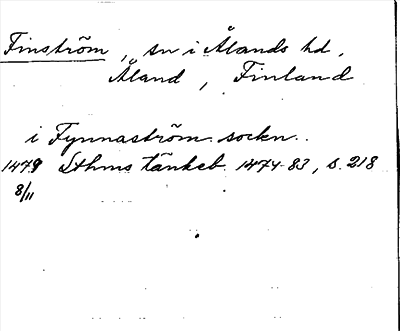 Finström, sn i Ålands hd,
Åland, Finland
i Fynnaström sockn.
1479 Sthms tänkeb. 1474-83, s. 218
8/11